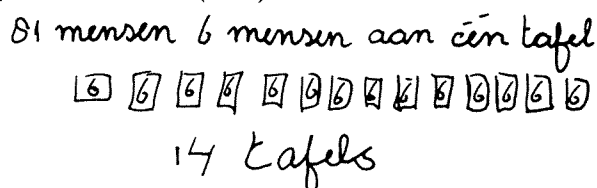 81 mensen 6 mensen aan één tafel
6 6 6 6 6 6 6 6 6 6 6 6 6 6
14 tafels